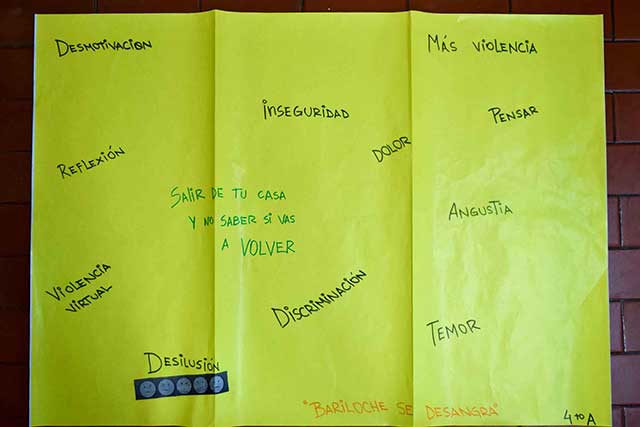 DESMOTIVACION
MÁS VIOLENCIA
INSEGURIDAD
PENSAR
DOLOR
REFLEXIÓN
SALIR DE TU CASA
Y NO SABER SI VAS
A VOLVER
ANGUSTIA
VIOLENCIA
VIRTUAL
DISCRIMINACIÓN
TEMOR
DESILUSIÓN
"BARILOCHE SE DESANGRA"
4to A